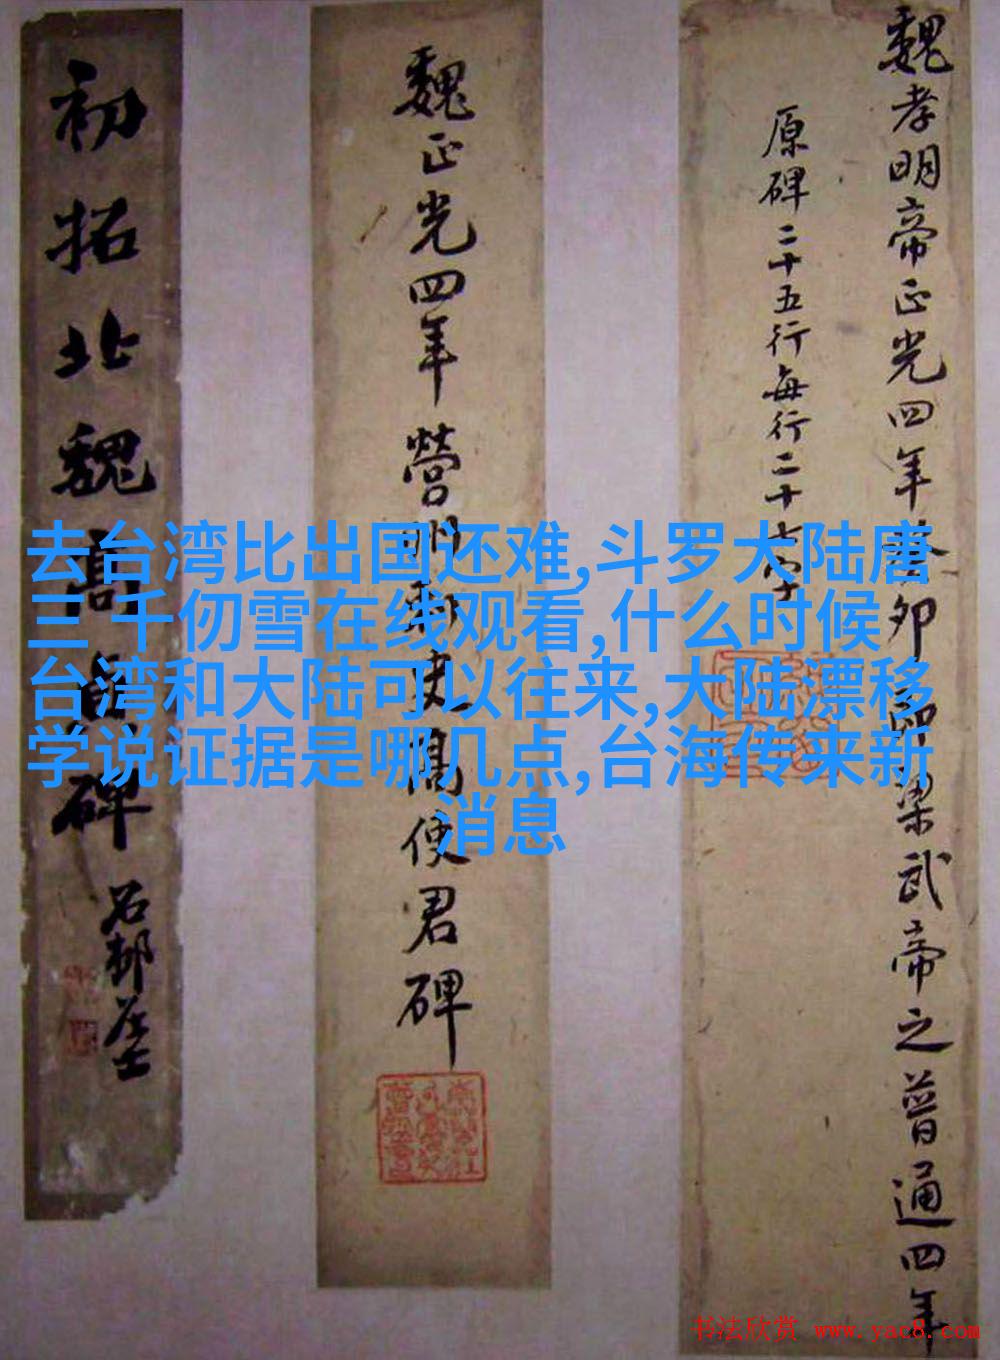 魏孝明帝正光四年癸卯即梁武帝之普通四年
原碑二十五行每行二十七字
魏正光四年營州刺史高使君碑
初拓北魏高貞碑
石邨居士
去台湾比出国还难,斗罗大陆唐
三 千仞雪在线观看,什么时候
台湾和大陆可以往来,大陆漂移
学说证据是哪几点,台海传来新
消息
书法欣赏 www.yac8.com